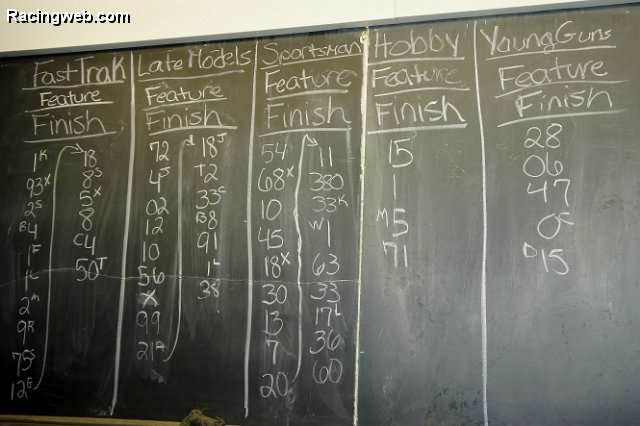 Racingweb.com
FastTrak
Feature
Finish
1K
93X
2S
B4
1F
1L
2M
9R
75S
12G
18
8S
5X
8
C4
50T
Late Models
Feature
Finish
72
4S
02
12
10
56
X
99
21A
18J
T2
33C
B8
91
1L
38
Sportsman
Feature
Finish
54
68X
10
45
18X
30
13
7
20
11
380
33K
W1
63
33
17L
36
60
Hobby
Feature
Finish
15
1
M5
71
Young Guns
Feature
Finish
28
06
47
0C
D15